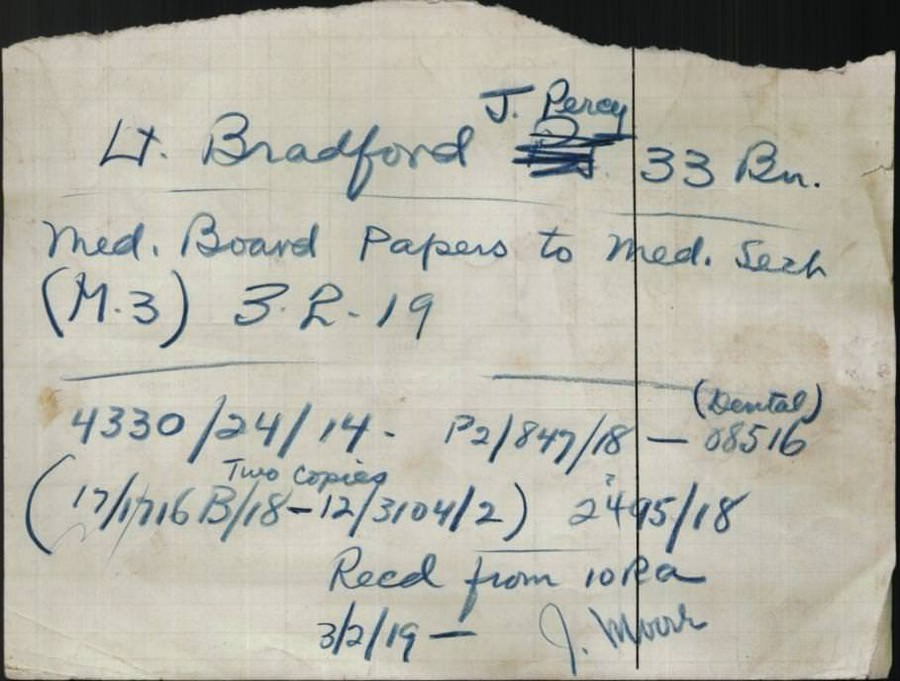 J. Percy
Lt. Bradford 33 Bn.
Med. Board Papers to Med. Sech
(M.3) 3.2.19
(Dental)
4330/24/14. P2/847/18 — 08516
Two copies
(17/1716 B/18 – 12/3104/2) 2495/18
Recd from
3/2/19 — J. Moore